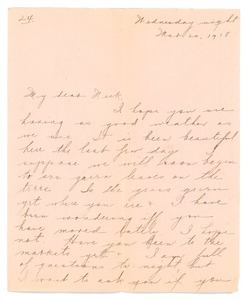 24.
Wednesday night
Mar. 20, 1918
My dear Nick:
I hope you are
having as good weather as
we are. It is been beautiful
here the last few day. I
suppose we will soon begin
to see green leaves on the
trees. Is the grass green
yet where you are? I have
been wondering iff you
have moved lately I hope
not. Have you been to the
markets yet? I am full
of questions to-night, but
I want to ask you if you